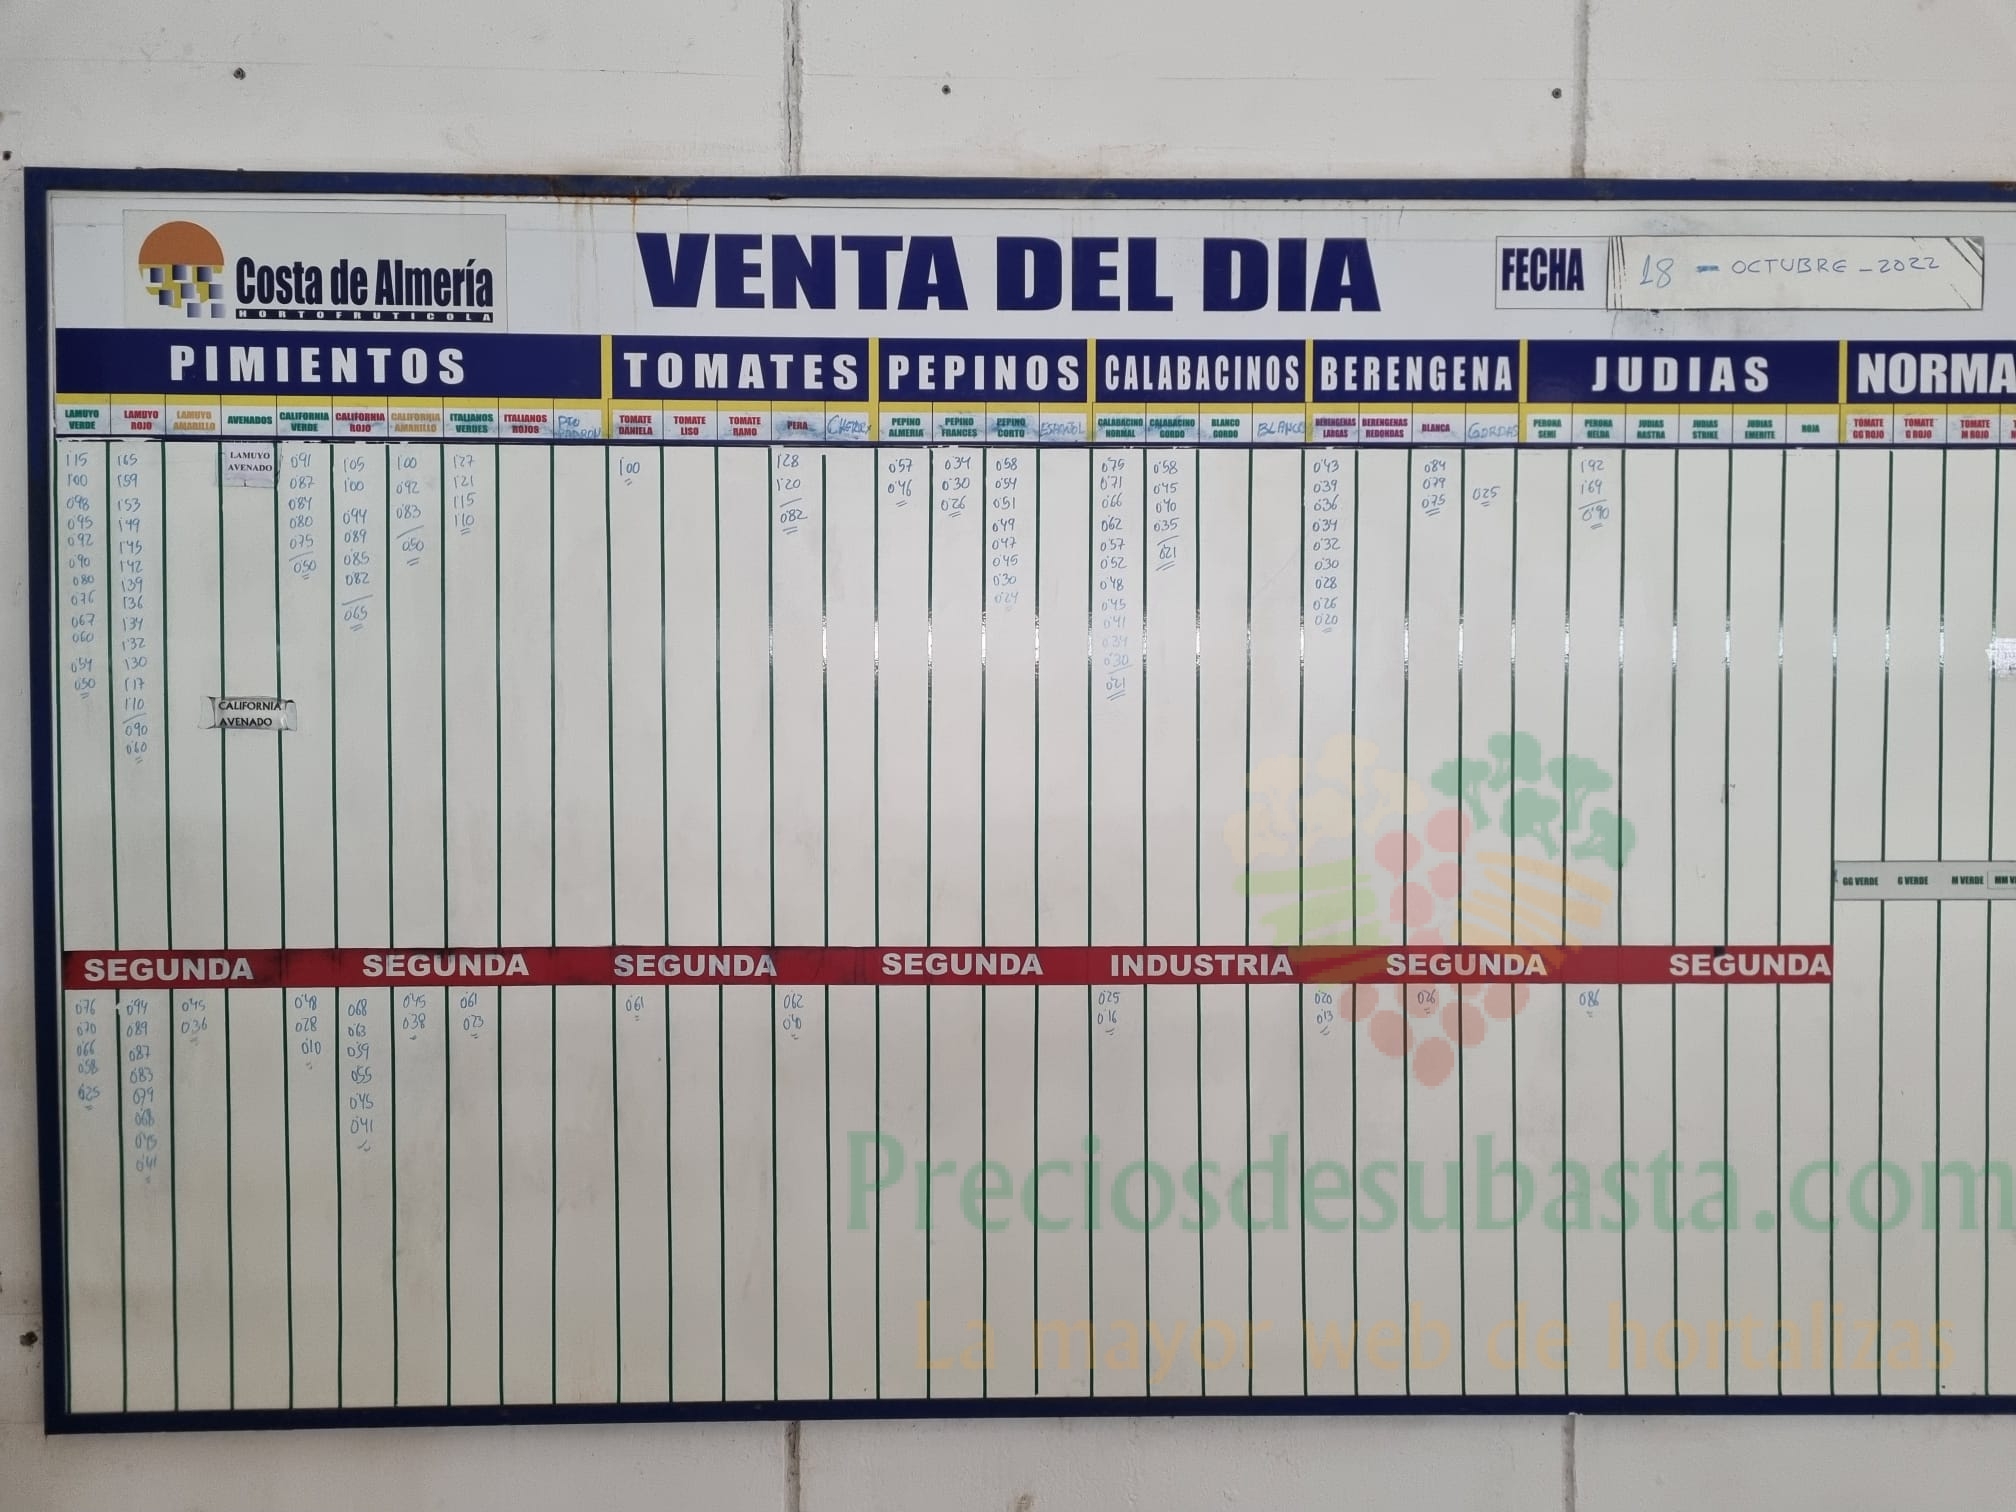 Costa de Almería
HORTOFRUTICOLA
VENTA DEL DIA
FECHA
18 - OCTUBRE - 2022
PIMIENTOS
TOMATES
PEPINOS
CALABACINOS
BERENGENA
JUDIAS
NORMA
LAMUYO VERDE
LAMUYO ROJO
LAMUYO AMARILLO
AVENADOS
CALIFORNIA VERDE
CALIFORNIA ROJO
CALIFORNIA AMARILLO
ITALIANOS VERDES
ITALIANOS ROJOS
PTO PADRON
TOMATE DANIELA
TOMATE LISO
TOMATE RAMO
PERA
CHERRY
PEPINO ALMERIA
PEPINO FRANCES
PEPINO CORTO
ESPAÑOL
CALABACINO NORMAL
CALABACINO GORDO
BLANCO GORDO
BLANCO
BERENGENAS LARGAS
BERENGENAS REDONDAS
BLANCA
GORDAS
PERONA SEMI
PERONA HELDA
JUDIAS RASTRA
JUDIAS STRIKE
JUDIAS EMERITE
ROJA
TOMATE GG ROJO
TOMATE G ROJO
TOMATE M ROJO
1'15
1'00
0'98
0'95
0'92
0'90
0'80
0'76
0'67
0'60
0'54
0'50
1'65
1'59
1'53
1'49
1'45
1'42
1'39
1'36
1'34
1'32
1'30
1'17
1'10
0'90
0'60
LAMUYO
AVENADO
CALIFORNIA
AVENADO
0'91
0'87
0'84
0'80
0'75
0'50
1'05
1'00
0'94
0'89
0'85
0'82
0'65
1'00
0'92
0'83
0'50
1'27
1'21
1'15
1'10
1'00
1'28
1'20
0'82
0'57
0'46
0'34
0'30
0'26
0'58
0'54
0'51
0'49
0'47
0'45
0'30
0'24
0'75
0'71
0'66
0'62
0'57
0'52
0'48
0'45
0'41
0'34
0'30
0'21
0'58
0'45
0'40
0'35
0'21
0'43
0'39
0'36
0'34
0'32
0'30
0'28
0'26
0'20
0'84
0'79
0'75
0'25
1'92
1'64
0'90
GG VERDE
G VERDE
M VERDE
SEGUNDA
SEGUNDA
SEGUNDA
SEGUNDA
INDUSTRIA
SEGUNDA
SEGUNDA
0'76
0'70
0'66
0'58
0'25
0'94
0'89
0'87
0'83
0'79
0'68
0'45
0'41
0'45
0'36
0'48
0'28
0'10
0'68
0'63
0'59
0'55
0'45
0'41
0'45
0'38
0'61
0'23
0'61
0'62
0'40
0'25
0'16
0'20
0'13
0'26
0'86
Preciosdesubasta.com
La mayor web de hortalizas